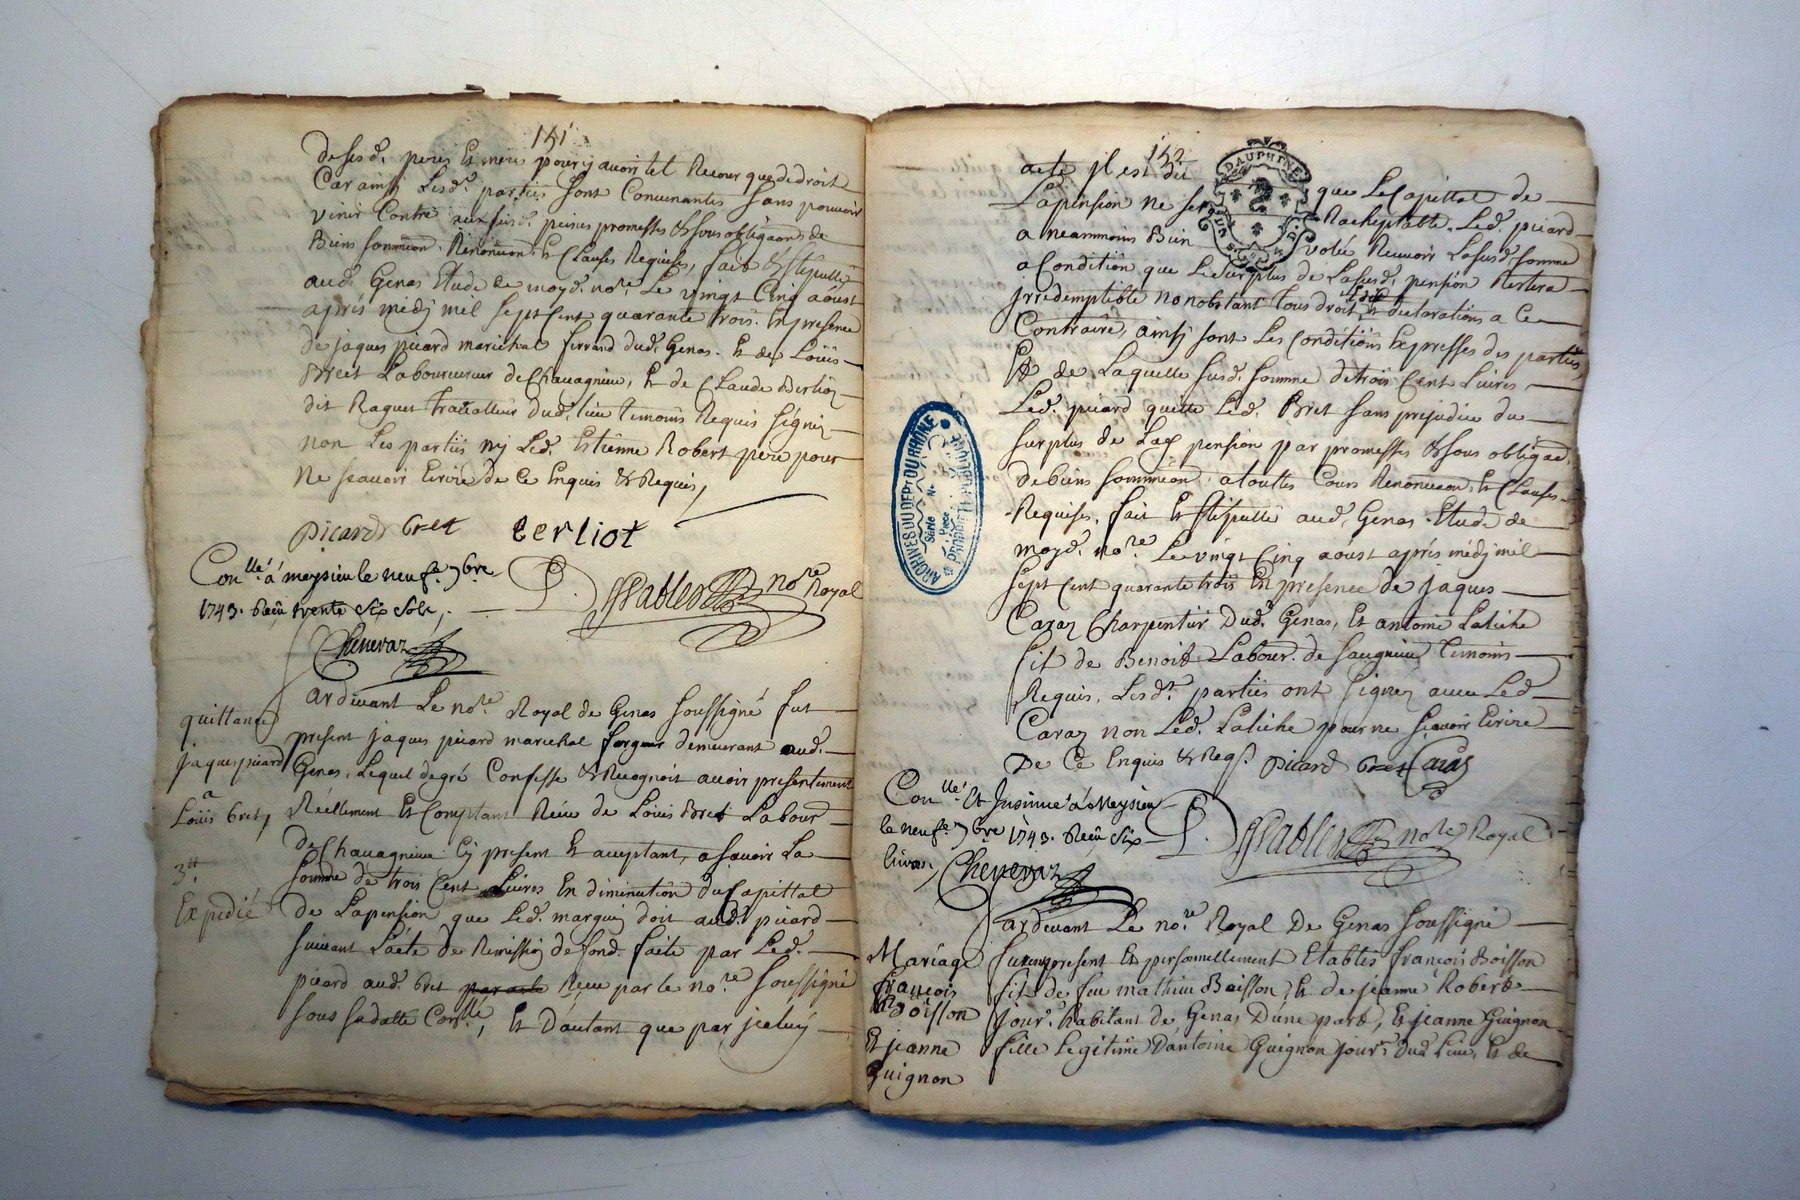 151
desesd. peres Et meres pour y avoir tel Recour que de droit
Car ainsy Lesd.s parties sont Convenantes sans pouvoir
venir Contre peines promesses & sous obligaons de
Biens soumision Renonciaon & Clauses Requises, fait & stipullé
aud. Genas Etude de moyd. no.re Le vingt Cinq aoust
apres midy mil sept Cent quarante trois. En presence
de jaques picard marechal ferrand dud. Genas. Et de Loüis
Bret Laboureureur de Chavagnieu, Et de Claude Berlioz
dit Raquet travalleur dud. lieu temoins Requis signéz
non Les parties ny Led. Estienne Robert pere pour
Ne scavoir Ecrire de Ce Enquis & Requis,
Picard bret berliot
Con.llé á meysieu le neuf.e 9bre
1743. Receu trente Six Sols,
P. no.re Royal
Chenevaz
quittance
jaques picard
a
Loüis bret,
3.tt
Expedié
ardevant Le no.re Royal de Genas soussigné fut
present jaques picard marechal forgeur demeurant aud.
Genas, Lequel degré Confesse & Recognoit avoir presentement
Réellement Et Comptant Receu de Loüis Bret Labour
de Chavagnieu Cy present Et acceptant, a scavoir La
somme de trois Cent Livres En diminution du Capittal
de La pension que Led. doit aud. picard
suivant L'acte de Remission de fond. faite par Led.
picard aud. bret par acte Receu par le no.re soussigné
sous sa datte Con.llé, Et D'autant que par jceluy
152
acte jl est dit que Le Capittal de
La pension ne sera Racheptable. Led. picard
a neammoins Bien volu Recevoir La susd. somme
a Condition que Le surplus de La susd. pension Restera
jrredemptible nonobstant tous droit Edit & declarations a Ce
Contraire, ainsy sont Les Conditions Expresses des parties
de Laquelle susd. somme de trois Cent Livres
Led. picard quitte Led. Bret sans prejudice du
surplus de Lad. pension par promesses & sous obligaon
De biens soumision a touttes Cours Renonciaon & Clauses
Requises, fait Et stipullé aud. Genas Etude de
moyd. no.re Le vingt Cinq aoust apres midy mil
sept Cent quarante trois En presence de jaques
Caraz Charpentier Dud. Genas, Et antoine Latiche
fit de Benoit Labour. de saugnieu temoins
Requis, Lesd.s parties ont signez avec Led
Caraz non Led. Latiche pour ne scavoir Ecrire
De Ce Enquis & Req.s picard bret Caraz
Con.llé Et Jnsinué á Meysieu
le neuf.e 9bre 1743. Receu Six
livres,
P. no.re Royal
Chenevaz
Mariage
françois
Boisson
Et jeanne
Guignon
ardevant Le no.re Royal De Genas soussigné
furent present Et personnellement Etablis françois Boisson
fit de feu mathieu Boisson, Et de jeanne Robert
jour.r habitant de Genas D'une part, Et jeanne Guignon
fille Legitime D'antoine Guignon jour.r dud. Lieu, Et de
DAUPHINÉ
ARCHIVES DU DEPt DU RHONE
Série N°
Pièce
PROPRIÉTÉ PUBLIQUE